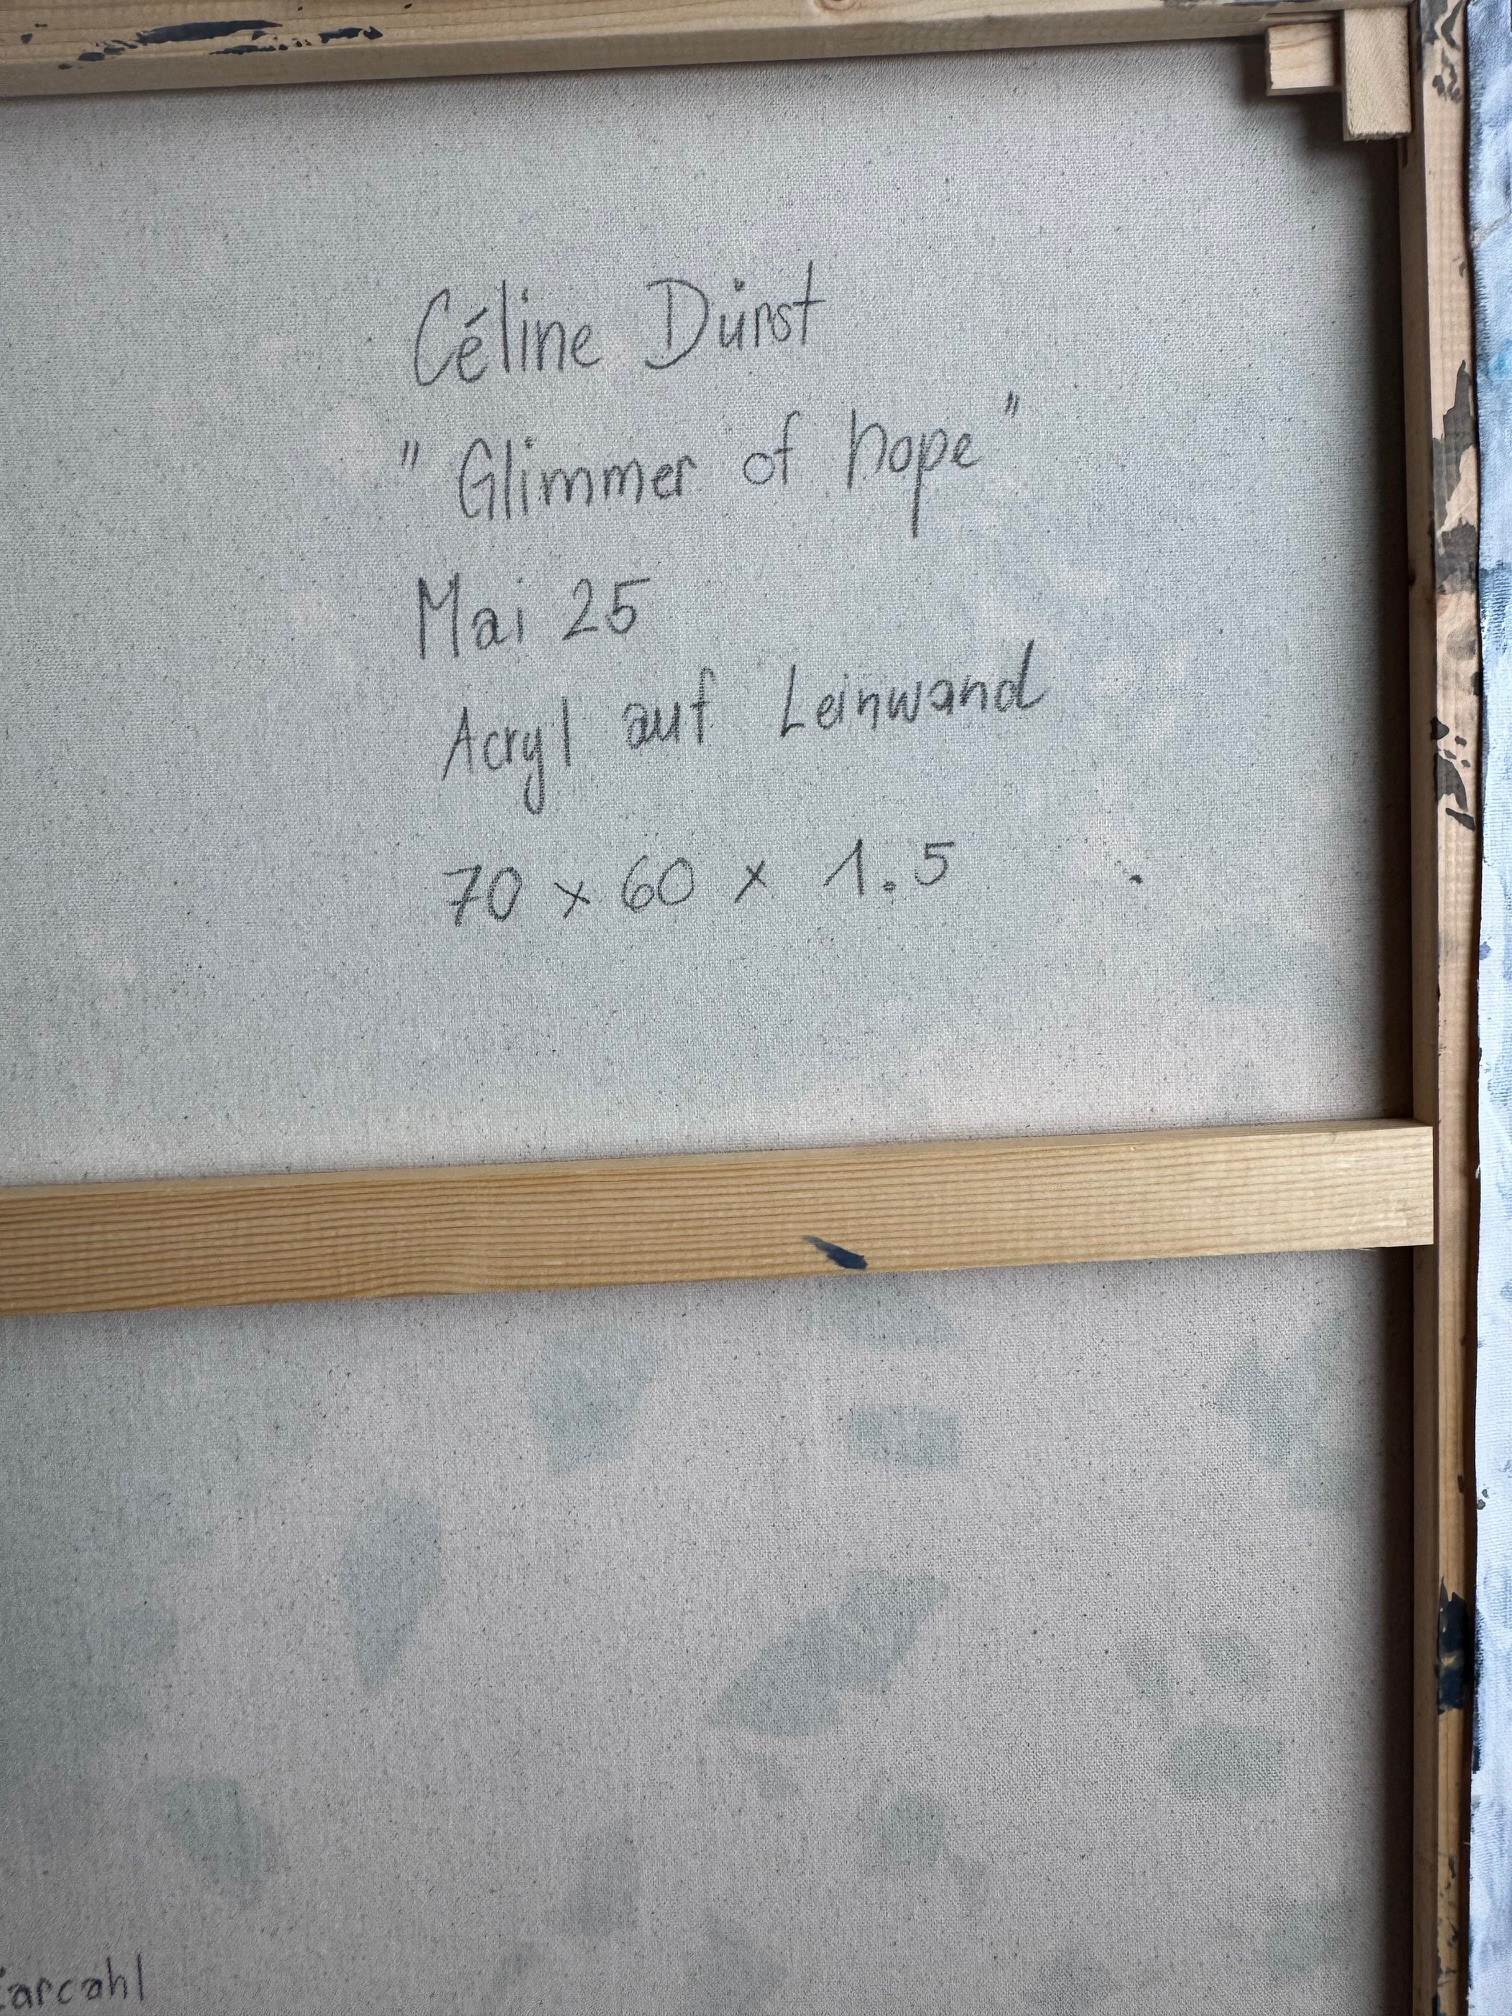 Céline Dürst
"Glimmer of hope"
Mai 25
Acryl auf Leinwand
70 x 60 x 1.5